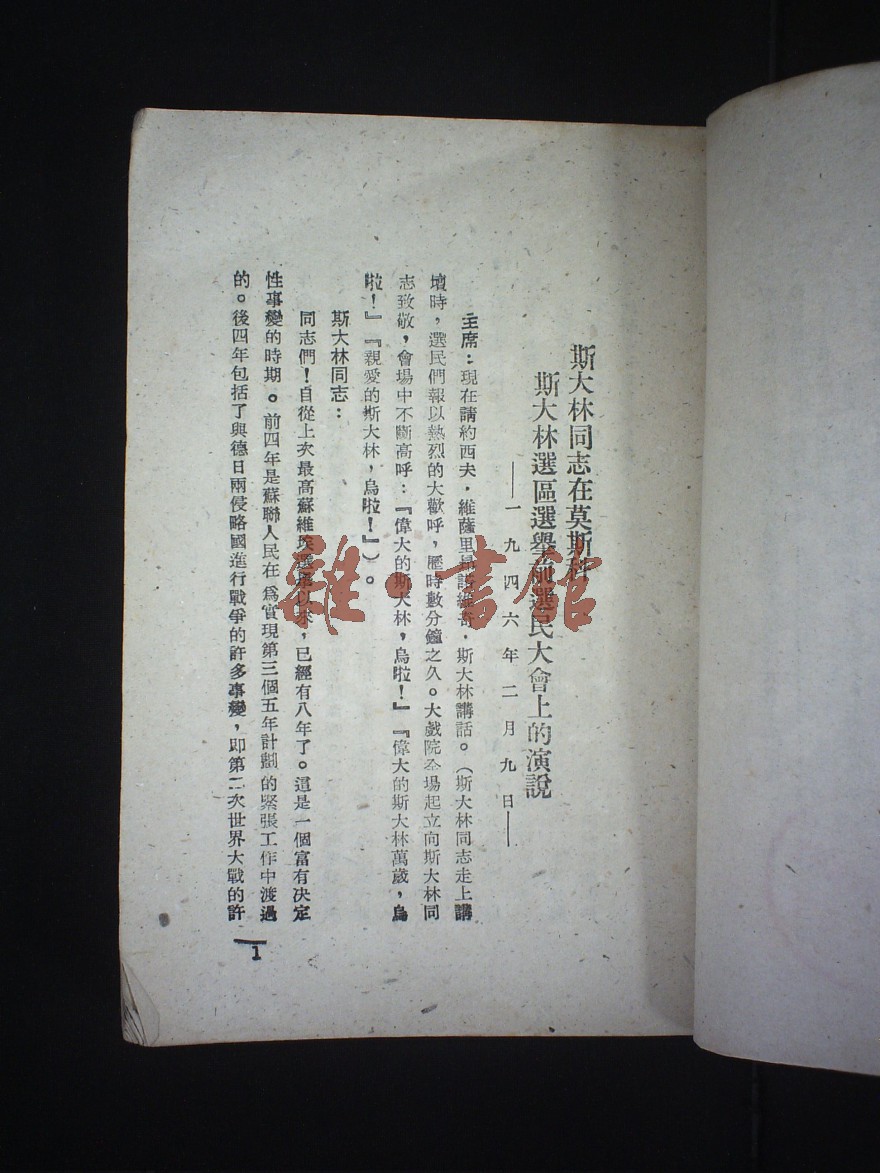 斯大林同志在莫斯科
斯大林選區選舉前選民大會上的演說
——一九四六年二月九日——
主席：現在請約西夫·維薩里昂諾維奇·斯大林講話。（斯大林同志走上講
壇時，選民們報以熱烈的大歡呼，歷時數分鐘之久。大戲院全場起立向斯大林同
志致敬，會場中不斷高呼：『偉大的斯大林，烏啦！』『偉大的斯大林萬歲，烏
啦！』『親愛的斯大林，烏啦！』）。
斯大林同志：
同志們！自從上次最高蘇維埃選舉以來，已經有八年了。這是一個富有决定
性事變的時期。前四年是蘇聯人民在為實現第三個五年計劃的緊張工作中渡過
的。後四年包括了與德日兩侵略國進行戰爭的許多事變，即第二次世界大戰的許
1
雜·書館